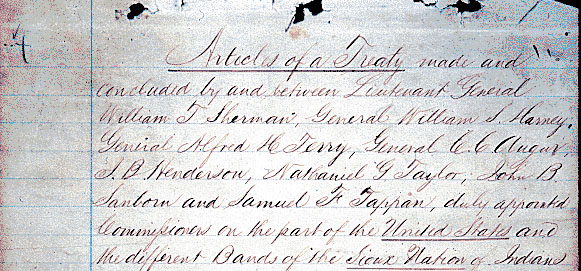 Articles of a Treaty made and
concluded by and between Lieutenant General
William T. Sherman, General William S. Harney,
General Alfred H. Terry, General C. C. Augur,
J. B. Henderson, Nathaniel G. Taylor, John B.
Sanborn and Samuel F. Tappan, duly appointed
Commissioners on the part of the United States and
the different Bands of the Sioux Nation of Indians